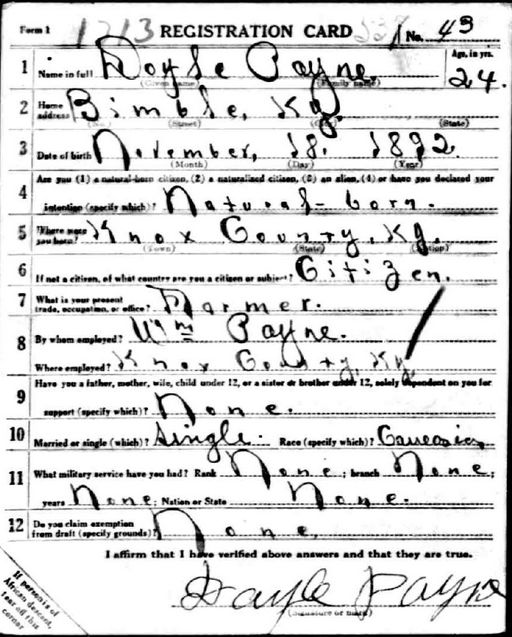 Form 1 1213 REGISTRATION CARD No. 43
1 Name in full Doyle Payne. Age, in yrs. 24.
(Given name) (Family name)
2 Home address Bimble, Ky.
(No.) (Street) (City) (State)
3 Date of birth November, 18. 1892.
(Month) (Day) (Year)
4 Are you (1) a natural-born citizen, (2) a naturalized citizen, (3) an alien, (4) or have you declared your
intention (specify which)? Natural-born.
5 Where were you born? Knox County, Ky.
(Town) (State) (Nation)
6 If not a citizen, of what country are you a citizen or subject? Citizen.
7 What is your present trade, occupation, or office? Farmer.
8 By whom employed? Wm Payne.
Where employed? Knox County, Ky.
9 Have you a father, mother, wife, child under 12, or a sister or brother under 12, solely dependent on you for
support (specify which)? None.
10 Married or single (which)? Single. Race (specify which)? Caucasian
11 What military service have you had? Rank None; branch None;
years None; Nation or State None.
12 Do you claim exemption from draft (specify grounds)? None.
I affirm that I have verified above answers and that they are true.
Doyle Payne
(Signature or mark)
If person is of
African descent,
tear off this
corner